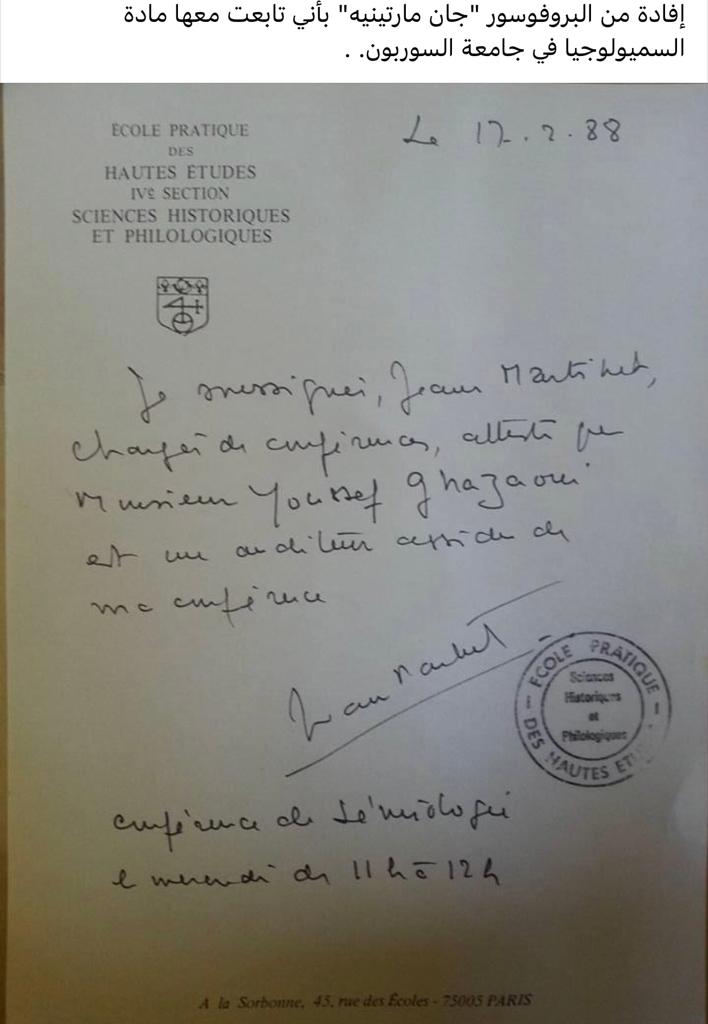 إفادة من البروفوسور "جان مارتينيه" بأني تابعت معها مادة
السميولوجيا في جامعة السوربون. .
ÉCOLE PRATIQUE
DES
HAUTES ÉTUDES
IVe SECTION
SCIENCES HISTORIQUES
ET PHILOLOGIQUES
Le 17.2.88
Je soussignée, Jeanne Martinet,
chargée de conférences, atteste que
Monsieur Youssef Ghazaoui
est un auditeur assidu de
ma conférence
Jeanne Martinet
ÉCOLE PRATIQUE DES HAUTES ETU
Sciences
Historiques
et
Philologiques
conférence de Sémiologie
le mercredi de 11h à 12h
A la Sorbonne, 45, rue des Écoles - 75005 PARIS